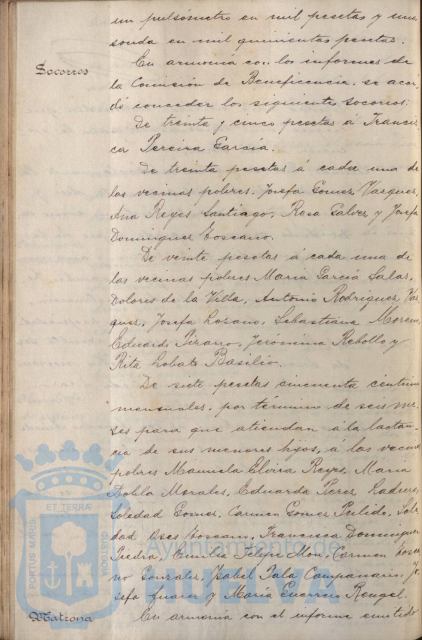 un pulsómetro en mil pesetas y una
sonda en mil quinientas pesetas.
Socorros
En armonía con los informes de
la Comisión de Beneficencia, se acor
dó conceder los siguientes socorros:
De treinta y cinco pesetas á Francis
ca Pereira García.
De treinta pesetas á cada una de
las vecinas pobres, Josefa Gomez Vazquez,
Ana Reyes Santiago, Rosa Galvez y Josefa
Dominguez Toscano.
De veinte pesetas á cada una de
las vecinas pobres María García Salas,
Dolores de la Villa, Antonia Rodriguez Vaz
quez, Josefa Lozano, Sebastiana Moreno,
Eduarda Pizarro, Jeronima Rebollo y
Rita Lobato Basilio.
De siete pesetas cincuenta centims
mensuales, por término de seis me
ses para que atiendan á la lactan
cia de sus menores hijos, á las vecinas
pobres Manuela Elvira Reyes, María
Morales, Eduarda Perez
Soledad Gomez, Carmen Gomez Pulido, Sole
dad Oses Toscano, Francisca Dominguez
Piedra, Emilia Felipe Mon, Carmen Loza
no Gonzalez, Isabel Pala Campanario, Jo
sefa Suarez y María Guerrero Rengel.
Matrona
En armonía con el informe emitido
PORTUS MARIS ET TERRAE CUSTODIAE
Ayuntamiento de
HUELVA